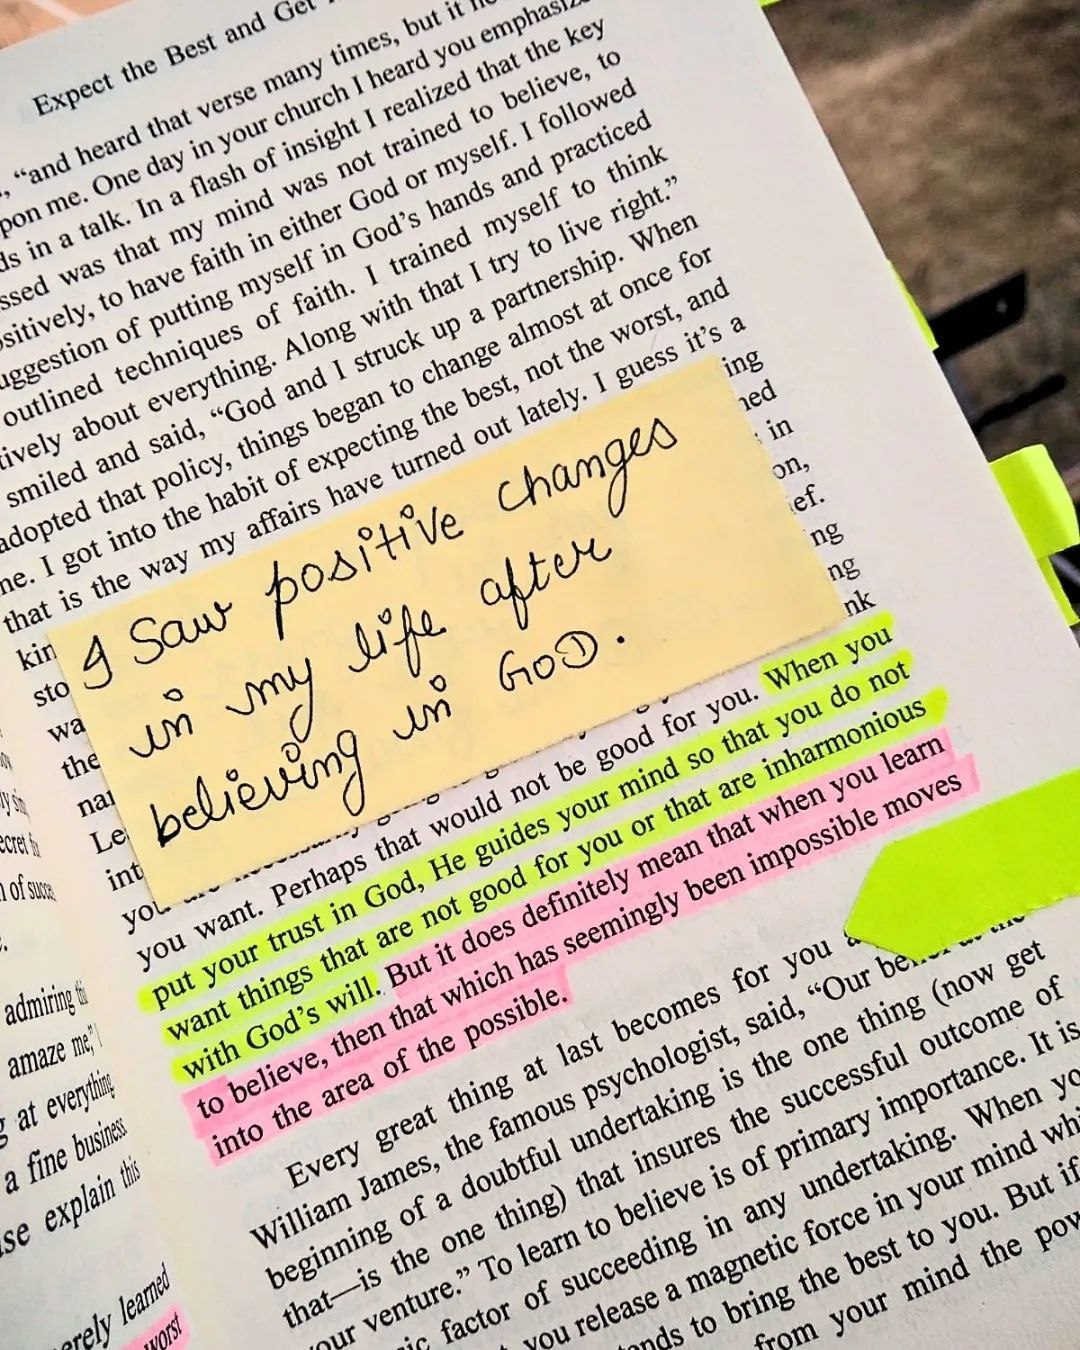 Expect the Best and Get
"and heard that verse many times, but it
upon me. One day in your church I heard you emphasize
in a talk. In a flash of insight I realized that the key
was that my mind was not trained to believe, to
to have faith in either God or myself. I followed
of putting myself in God's hands and practiced
outlined techniques of faith. I trained myself to think
about everything. Along with that I try to live right."
smiled and said, "God and I struck up a partnership. When
adopted that policy, things began to change almost at once for
me. I got into the habit of expecting the best, not the worst, and
that is the way my affairs have turned out lately. I guess it's a
I Saw positive changes
in my life after
believing in GOD.
you want. Perhaps that would not be good for you. When you
put your trust in God, He guides your mind so that you do not
want things that are not good for you or that are inharmonious
with God's will. But it does definitely mean that when you learn
to believe, then that which has seemingly been impossible moves
into the area of the possible.
Every great thing at last becomes for you
William James, the famous psychologist, said, "Our belief at the
beginning of a doubtful undertaking is the one thing (now get
that—is the one thing) that insures the successful outcome of
your venture." To learn to believe is of primary importance. It is
factor of succeeding in any undertaking. When
you release a magnetic force in your mind
to bring the best to you. But if
from your mind the
admiring
amaze me,"
at everything
a fine business
explain this
learned
worst